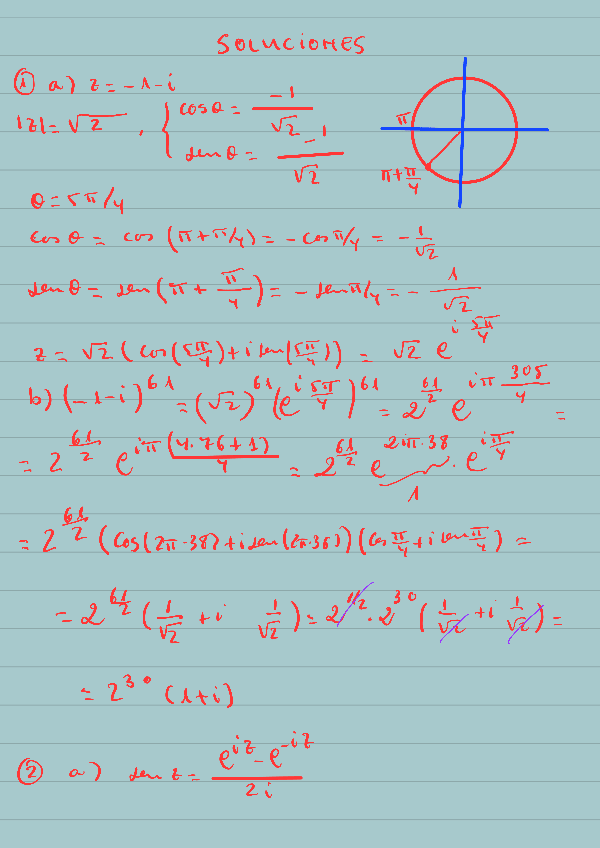 SOLUCIONES
① a) z = -1-i
|z| = √2 , { cosθ = -1/√2
senθ = -1/√2
π
π+π/4
θ = 5π/4
cos θ = cos (π+π/4) = -cos π/4 = -1/√2
sen θ = sen(π + π/4) = -sen π/4 = - 1/√2
z = √2 (cos(5π/4) + i sen(5π/4)) = √2 e^{i 5π/4}
b) (-1-i)^{61} = (√2)^{61} (e^{i 5π/4})^{61} = 2^{61/2} e^{iπ 305/4} =
= 2^{61/2} e^{iπ (4·76+1)/4} = 2^{61/2} e^{2iπ·38} · e^{iπ/4}
1
= 2^{61/2} (cos(2π·38)+i sen(2π·38)) (cos π/4 + i sen π/4) =
= 2^{61/2} (1/√2 + i 1/√2) = 2^{1/2} · 2^{30} (1/√2 + i 1/√2) =
= 2^{30} (1+i)
② a) sen z = (e^{iz} - e^{-iz})/2i